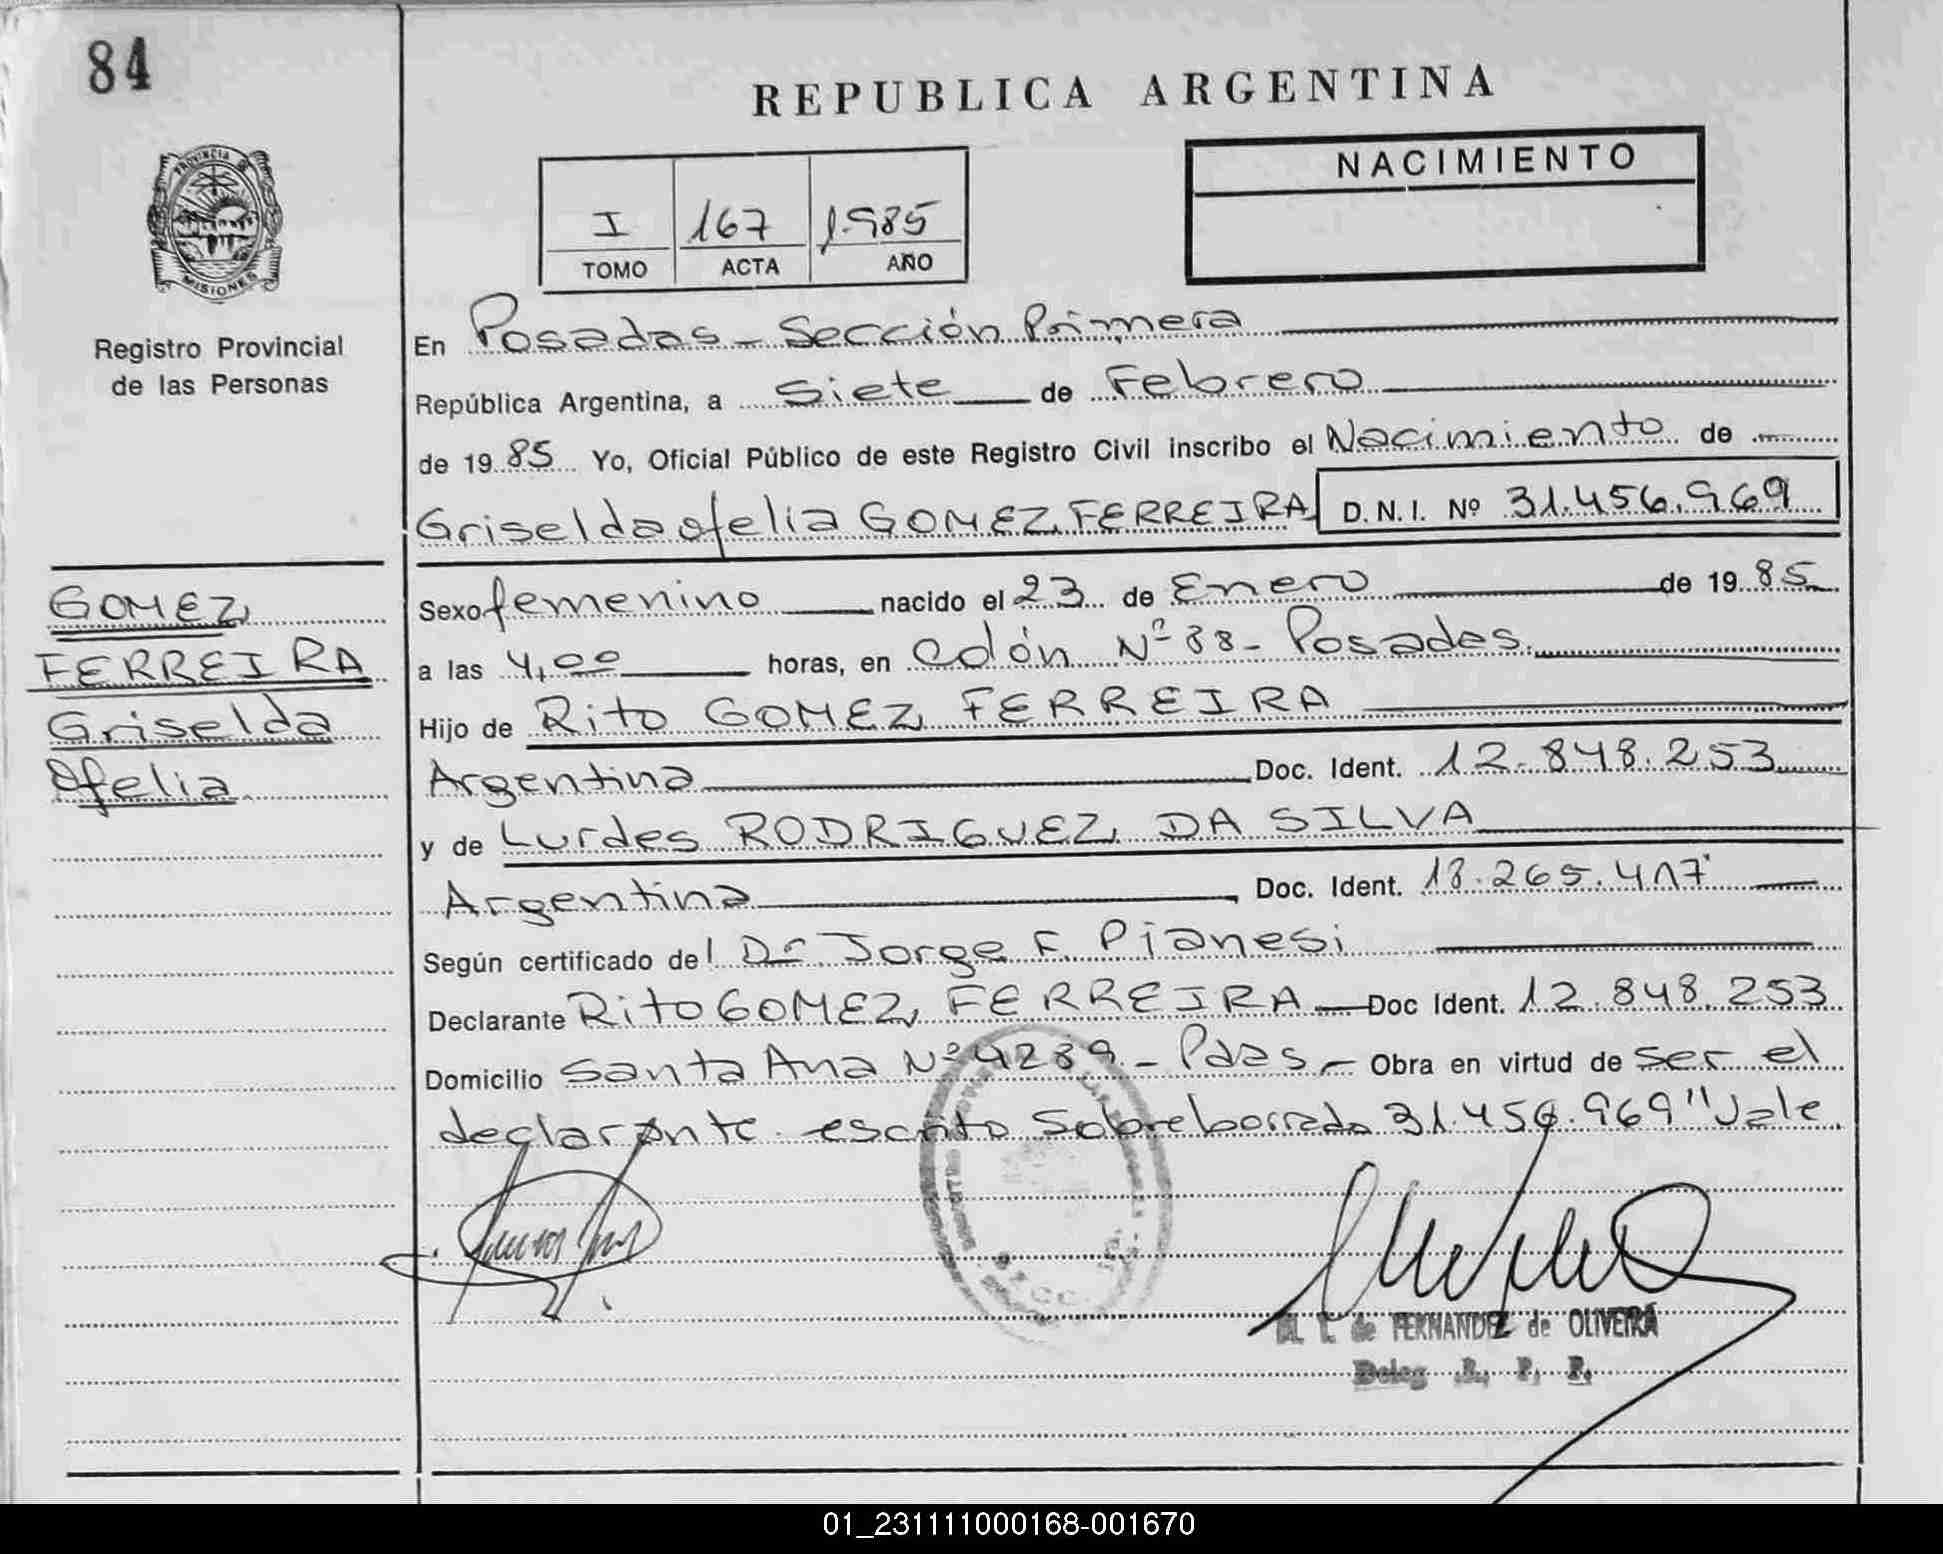 84
REPUBLICA ARGENTINA
PROVINCIA DE
MISIONES
Registro Provincial
de las Personas
I 167 1.985
TOMO ACTA AÑO
NACIMIENTO
En Posadas - Sección Primera
República Argentina, a Siete de Febrero
de 19 85 Yo, Oficial Público de este Registro Civil inscribo el Nacimiento de
Griselda Ofelia GOMEZ FERREIRA D.N.I. Nº 31.456.969
GOMEZ
FERREIRA
Griselda
Ofelia
Sexo femenino nacido el 23 de Enero de 19 85
a las 4,00 horas, en Colón Nº 38 - Posadas.
Hijo de Rito GOMEZ FERREIRA
Argentina Doc. Ident. 12.848.253
y de Lurdes RODRIGUEZ DA SILVA
Argentina Doc. Ident. 18.265.417
Según certificado del Dr. Jorge F. Pianesi
Declarante Rito GOMEZ FERREIRA Doc Ident. 12.848.253
Domicilio Santa Ana Nº 4239 - Pdas - Obra en virtud de ser el
declarante. escrito Sobreborrado 31.456.969" Vale.
M. L. de FERNANDEZ de OLIVEIRA
Deleg. R. P. P.
01_231111000168-001670